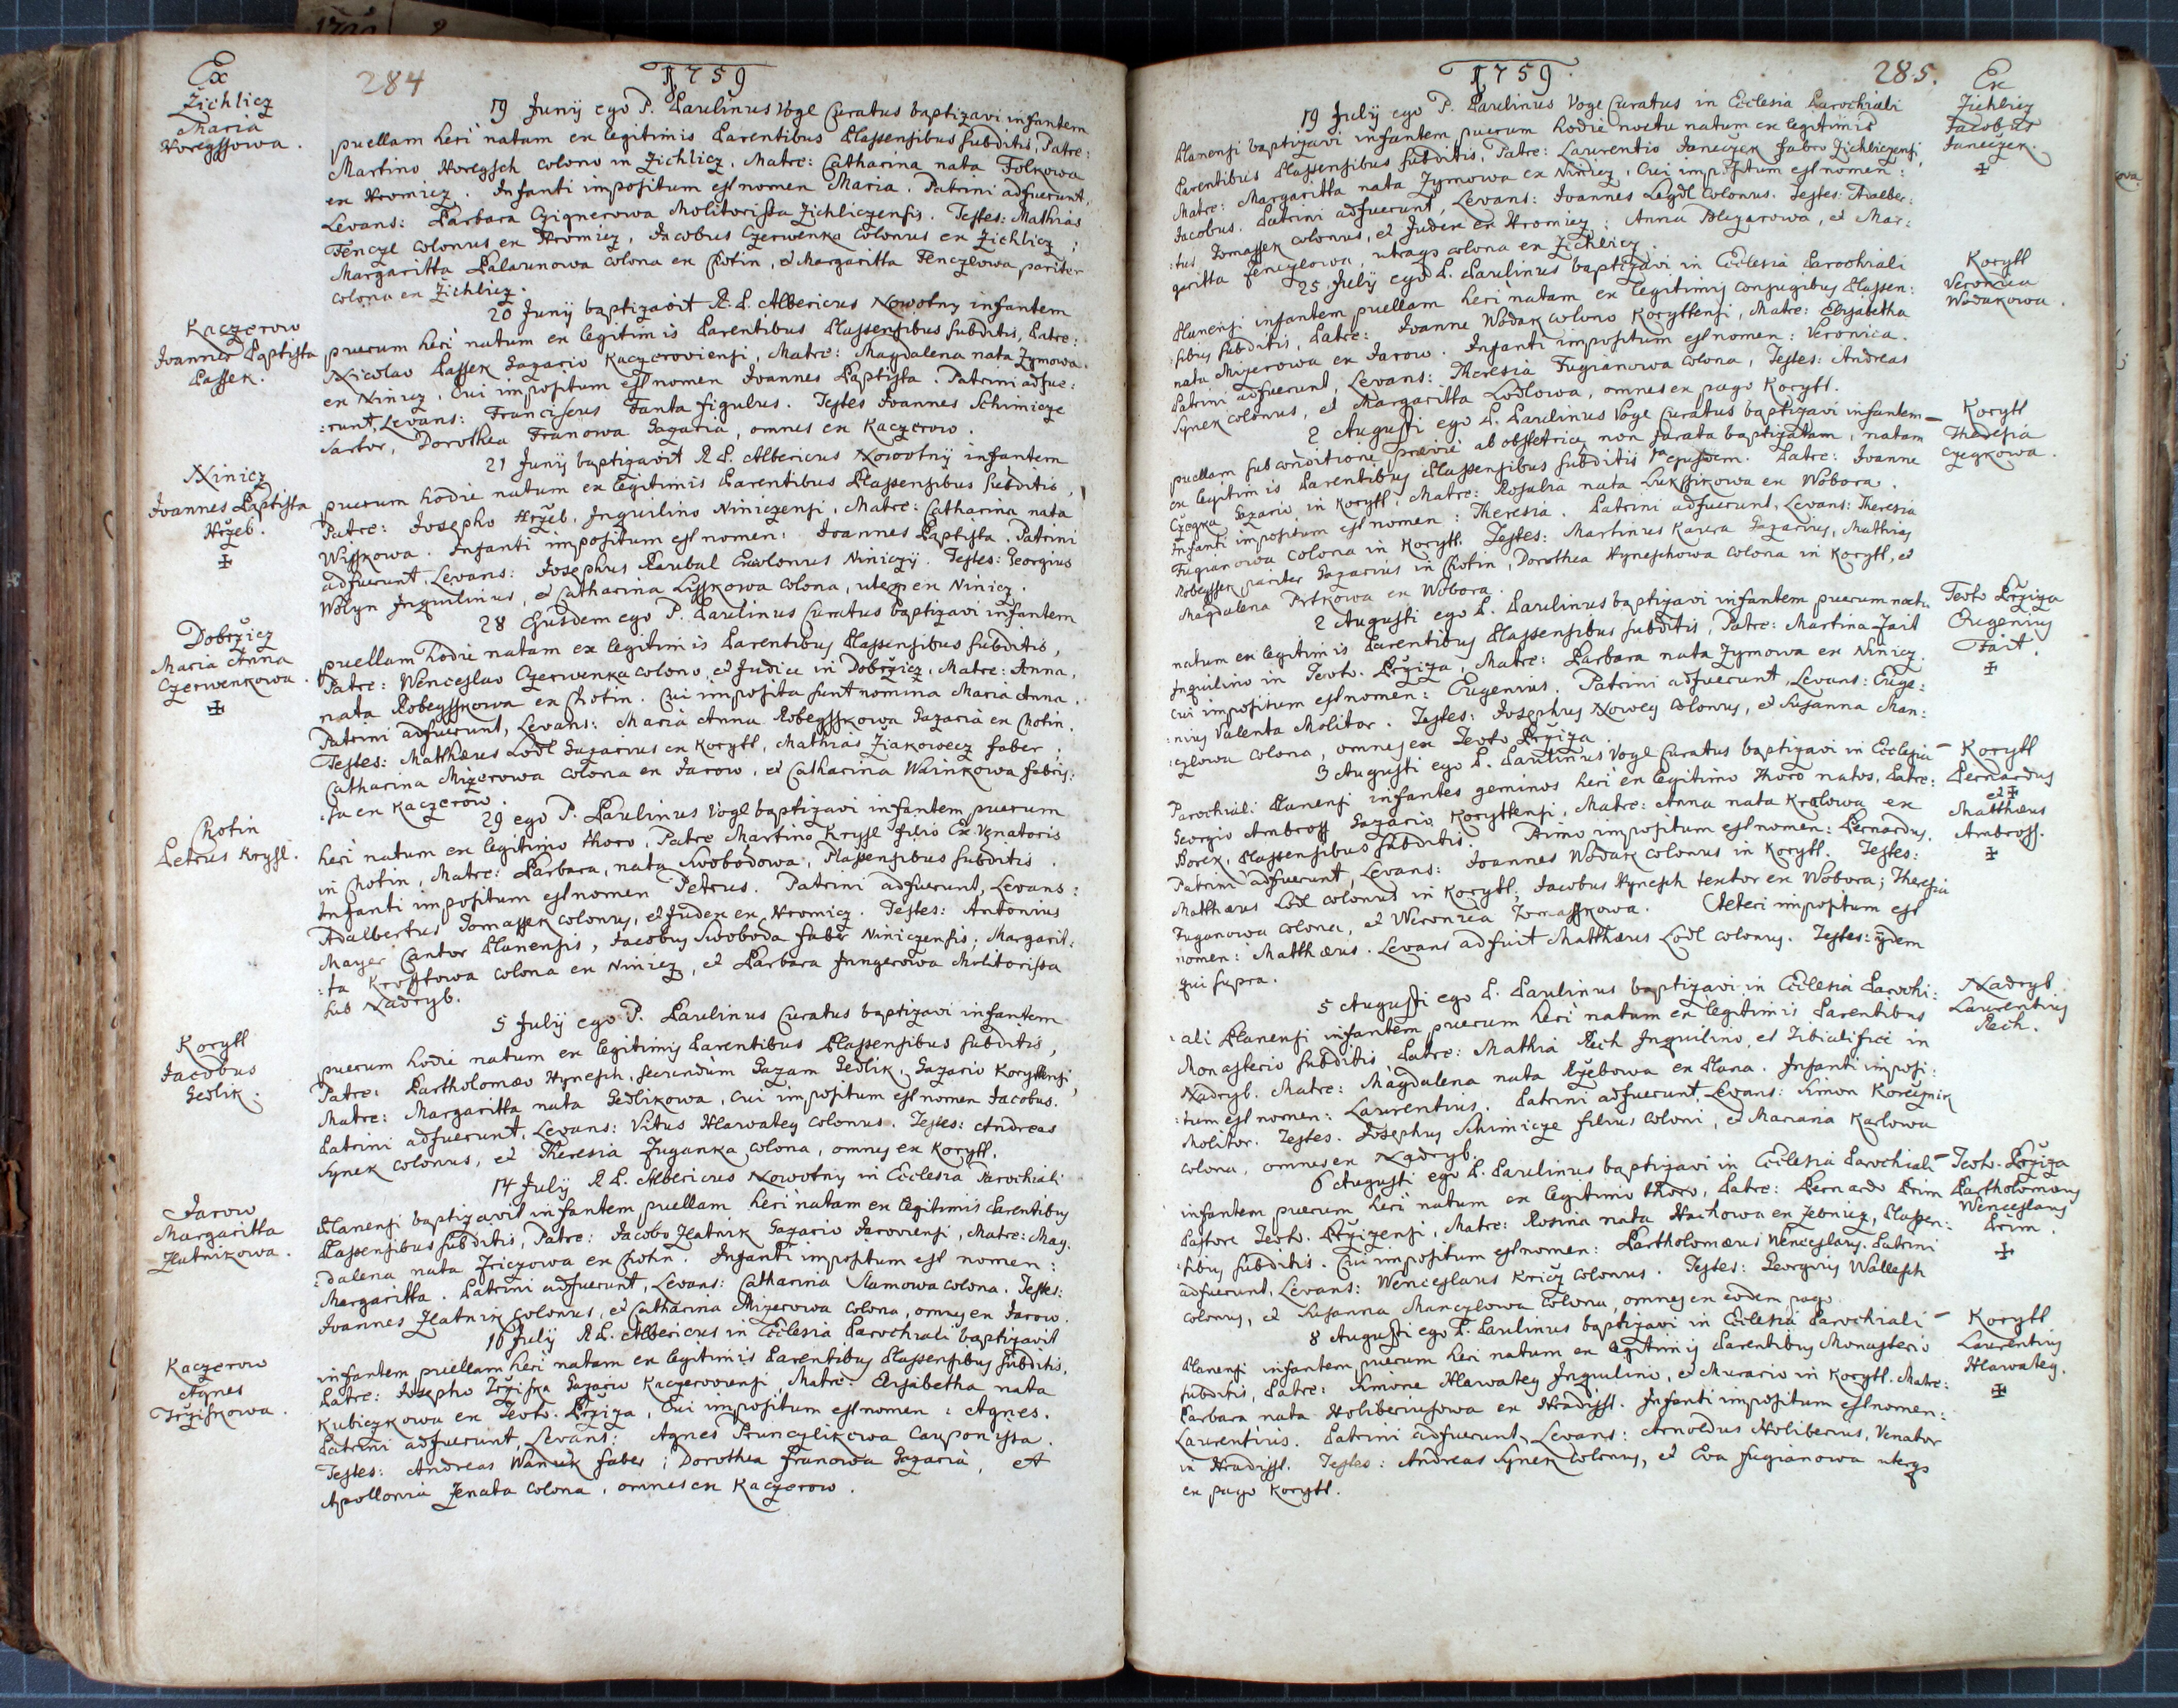 Ex
Zichlicz
Maria
Horegssowa.
284
1759
19 Junij ego P. Paulinus Vogl Curatus baptizavi infantem
puellam heri natam ex legitimis Parentibus Plassensibus subditis, Patre:
Martino Horegsch colono in Zichlicz, Matre: Catharina nata Folkowa
ex Hromicz. Infanti impositum est nomen Maria. Patrini adfuerunt,
Levans: Barbara Czignerowa Molitorissa Zichliczensis. Testes: Mathias
Fenczl colonus ex Hromicz, Jacobus Czerwenka colonus ex Zichlicz;
Margaritta Palaunowa colona ex Chotin, et Margaritta Fenczlowa pariter
colona ex Zichlicz.
Kaczerow
Joannes Baptista
Passek.
20 Junij baptizavit R. P. Albericus Nowotny infantem
puerum heri natum ex legitimis Parentibus Plassensibus subditis, Patre:
Nicolao Passek Gazario Kaczeroviensi, Matre: Magdalena nata Zymowa
ex Ninicz. Cui impositum est nomen Joannes Baptista. Patrini adfue:
:runt, Levans: Franciscus Fanta figulus. Testes Joannes Schimicze
Sartor, Dorothea Franowa Gazaria, omnes ex Kaczerow.
Ninicz
Joannes Baptista
Hržeb.
✠
21 Junij baptizavit R. P. Albericus Nowotnij infantem
puerum hodie natum ex legitimis Parentibus Plassensibus subditis,
Patre: Josepho Hržeb, Inquilino Niniczensi, Matre: Catharina nata
Wisskowa. Infanti impositum est nomen: Joannes Baptista. Patrini
adfuerunt, Levans: Josephus Raubal Excolonus Niniczij. Testes: Georgius
Wolyn Inquilinus, et Catharina Lysskowa colona, uterq ex Ninicz.
Dobržicz
Maria Anna
Czerwenkowa.
✠
28 Ejusdem ego P. Paulinus Curatus baptizavi infantem
puellam hodie natam ex legitimis Parentibus Plassensibus subditis,
Patre: Wenceslao Czerwenka colono et Judice in Dobržicz, Matre: Anna,
nata Robegsskowa ex Chotin. Cui imposita sunt nomina Maria Anna.
Patrini adfuerunt, Levans: Maria Anna Robegsskowa Gazaria ex Chotin.
Testes: Matthæus Lodl Gazarius ex Korytl, Mathias Žiakowecz faber,
Catharina Mizerowa colona ex Jarow, et Catharina Wainkowa fabris:
:sa ex Kaczerow.
Chotin
Petrus Krysl.
29 ego P. Paulinus Vogl baptizavi infantem puerum
heri natum ex legitimo thoro, Patre Martino Krysl filio Ex Venatoris
in Chotin, Matre: Barbara, nata Swobodowa, Plassensibus subditis.
Infanti impositum est nomen Petrus. Patrini adfuerunt, Levans:
Adalbertus Tomassek colonus, et Judex ex Hromicz. Testes: Antonius
Mayer Cantor Planensis, Jacobus Swoboda faber Niniczensis; Margarit:
:ta Krostowa colona ex Ninicz, et Barbara Jungerowa Molitorissa
sub Nadryb.
Korytl
Jacobus
Sedlik.
5 Julij ego P. Paulinus Curatus baptizavi infantem
puerum hodie natum ex legitimis Parentibus Plassensibus subditis,
Patre: Bartholomæo Hynesch, secundum Gazam Sedlik, Gazario Korytlensi,
Matre: Margaritta nata Sedlikowa, cui impositum est nomen Jacobus.
Patrini adfuerunt, Levans: Vitus Hlawatey colonus. Testes: Andreas
Synek colonus, et Theresia Fuganka colona, omnes ex Korytl.
Jarow
Margaritta
Zlatnikowa.
14 Julij R. P. Albericus Nowotny in Ecclesia Parochiali
Planensi baptizavit infantem puellam heri natam ex legitimis Parentibus
Plassensibus subditis, Patre: Jacobo Zlatnik Gazario Jaroviensi, Matre: Mag:
:dalena nata Friczowa ex Chotin. Infanti impositum est nomen:
Margaritta. Patrini adfuerunt, Levans: Catharina Slamowa colona. Testes:
Joannes Zlatnik colonus, et Catharina Mizerowa colona, omnes ex Jarow.
Kaczerow
Agnes
Tržiskowa.
16 Julij R. P. Albericus in Ecclesia Parochiali baptizavit
infantem puellam heri natam ex legitimis Parentibus Plassensibus subditis,
Patre: Josepho Tržiska Gazario Kaczeroviensi, Matre: Elisabetha nata
Kubiczkowa ex Teuto. Bržiza, Cui impositum est nomen: Agnes.
Patrini adfuerunt, Levans: Agnes Prunczlikowa Cauponissa.
Testes: Andreas Waniek faber; Dorothea Franowa Gazaria, et
Apollonia Zenata colona, omnes ex Kaczerow.
1759.
285.
Ex
Zichlicz
Jacobus
Janeczek.
✠
19 Julij ego P. Paulinus Vogl Curatus in Ecclesia Parochiali
Planensi baptizavi infantem puerum hodie noctu natum ex legitimis
Parentibus Plassensibus subditis, Patre: Laurentio Janeczek fabro Zichliczensi,
Matre: Margaritta nata Zymowa ex Ninicz, Cui impositum est nomen:
Jacobus. Patrini adfuerunt, Levans: Joannes Legdl colonus. Testes: Adalber:
:tus Tomassek colonus, et Judex ex Hromicz; Anna Blezerowa, et Mar:
garitta fenczlowa, utraqs colona ex Zichlicz.
Korytl
Veronica
Wodakowa.
25 Julij ego P. Paulinus baptizavi in Ecclesia Parochiali
Planensi infantem puellam heri natam ex legitimis conjugibus Plassen:
:sibus subditis, Patre: Joanne Wodak colono Korytlensi, Matre: Elisabetha
nata Mizerowa ex Jarow. Infanti impositum est nomen: Veronica.
Patrini adfuerunt, Levans: Theresia Fugianowa colona, Testes: Andreas
Synek colonus, et Margaritta Lodlowa, omnes ex pago Korytl.
Korytl
Theresia
Czegkowa.
2 Augusti ego P. Paulinus Vogl Curatus baptizavi infantem
puellam sub conditione prævie ab obstetrice non jurata baptizatam, natam
ex legitimis Parentibus Plassensibus subditis 1ma ejusdem. Patre: Joanne
Czegka Gazario in Korytl, Matre: Rosalia nata Lukssikowa ex Wobora.
Infanti impositum est nomen: Theresia. Patrini adfuerunt, Levans: Theresia
Fugianowa colona in Korytl. Testes: Martinus Kaura Gazarius, Mathias
Robegssek pariter Gazarius in Chotin, Dorothea Hyneschowa colona in Korytl, et
Magdalena Pitkowa ex Wobora.
Teuto Bržiza
Eugenius
Fait.
✠
2 Augusti ego P. Paulinus baptizavi infantem puerum noctu
natum ex legitimis Parentibus Plassensibus subditis, Patre: Martino Fait
Inquilino in Teuto. Bržiza, Matre: Barbara nata Zymowa ex Ninicz.
Cui impositum est nomen: Eugenius. Patrini adfuerunt, Levans: Euge:
:nius Valenta Molitor. Testes: Josephus Nowey colonus, et Susanna Man:
:czlowa colona, omnes ex Teuto Bržiza.
Korytl
Bernardus
et ✠
Matthæus
Ambross.
✠
3 Augusti ego P. Paulinus Vogl Curatus baptizavi in Ecclesia
Parochiali Planensi infantes geminos heri ex legitimo thoro natos, Patre:
Georgio Ambross Gazario Korytlensi, Matre: Anna nata Kralowa ex
Borek, Plassensibus subditis. Primo impositum est nomen: Bernardus.
Patrini adfuerunt, Levans: Joannes Wodak colonus in Korytl. Testes:
Matthæus Lodl colonus in Korytl; Jacobus Hynesch textor ex Wobora; Theresia
Fuganowa colona, et Weronica Tomasskowa. Alteri impositum est
nomen: Matthæus. Levans adfuit Matthæus Lodl colonus. Testes: ijdem
qui supra.
Nadryb
Laurentius
Pech.
5 Augusti ego P. Paulinus baptizavi in Ecclesia Parochi:
:ali Planensi infantem puerum heri natum ex legitimis Parentibus
Monasterio subditis Patre: Mathia Pech Inquilino, et Tibialifici in
Nadryb. Matre: Magdalena nata Ržebowa ex Plana. Infanti imposi:
:tum est nomen: Laurentius. Patrini adfuerunt, Levans: Simon Korczynik
Molitor. Testes. Josephus Schimicze filius coloni, et Mariana Karlowa
colona, omnes ex Nadryb.
Teuto. Bržiza
Bartholomæus
Wenceslaus
Prim.
✠
6 Augusti ego P. Paulinus baptizavi in Ecclesia Parochiali
infantem puerum heri natum ex legitimo thoro, Patre: Bernardo Prim
Pastore Teuto. Bržizensi, Matre: Rosina nata Hachowa ex Zebnicz, Plassen:
:sibus subditis. Cui impositum est nomen: Bartholomæus Wenceslaus. Patrini
adfuerunt, Levans: Wenceslaus Kricž colonus. Testes: Georgius Wallesch
colonus, et Susanna Manczlowa colona, omnes ex eodem pago.
Korytl
Laurentius
Hlawatey.
✠
8 Augusti ego P. Paulinus baptizavi in Ecclesia Parochiali
Planensi infantem puerum heri natum ex legitimis Parentibus Monasterio
subditis, Patre: Simone Hlawatey Inquilino, et Murario in Korytl. Matre:
Barbara nata Holiberiusowa ex Hradisst. Infanti impositum est nomen:
Laurentius. Patrini adfuerunt, Levans: Arnoldus Holiberius, Venator
in Hradisst. Testes: Andreas Synek colonus, et Eva fugianowa uterqs
ex pago Korytl.